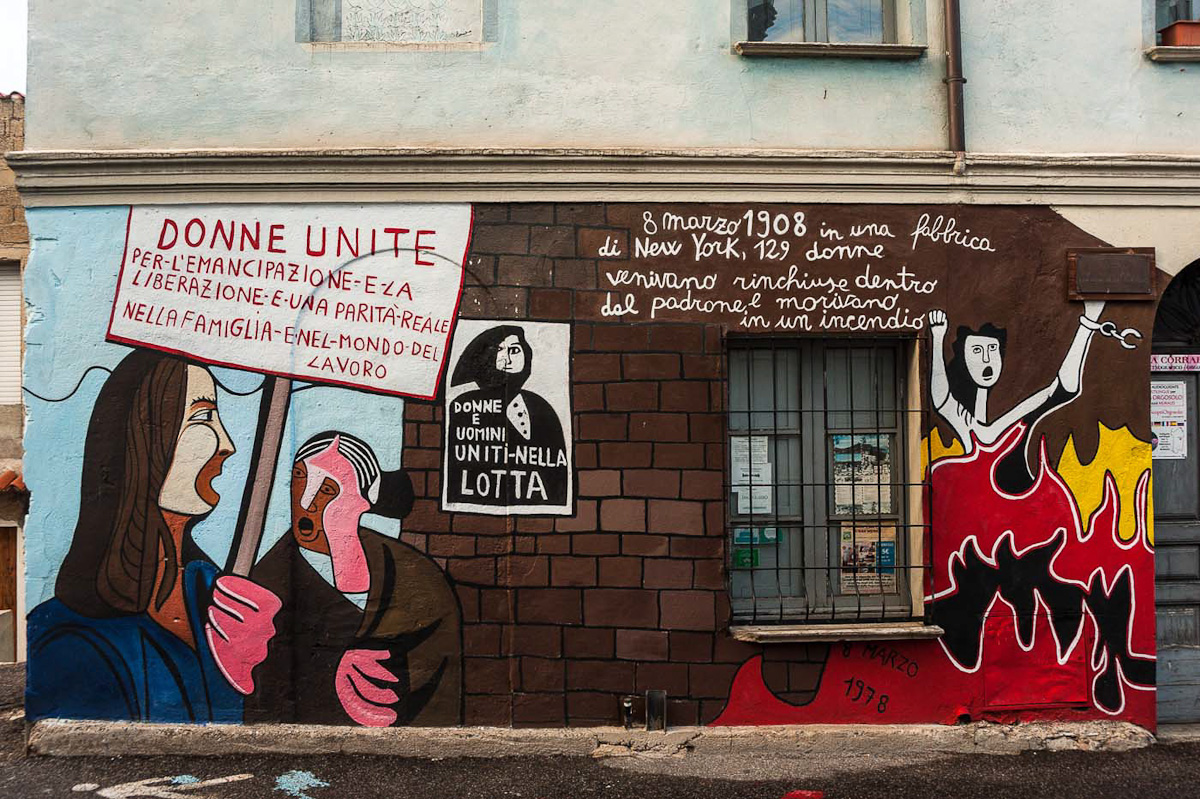 DONNE UNITE
PER-L'EMANCIPAZIONE-E-LA
LIBERAZIONE-E-UNA PARITÀ-REALE
NELLA FAMIGLIA-E-NEL-MONDO-DEL
LAVORO
DONNE
E
UOMINI
UNITI-NELLA
LOTTA
8 marzo 1908 in una fabbrica
di New York, 129 donne
venivano rinchiuse dentro
dal padrone, e morivano
in un incendio
8 MARZO
1978